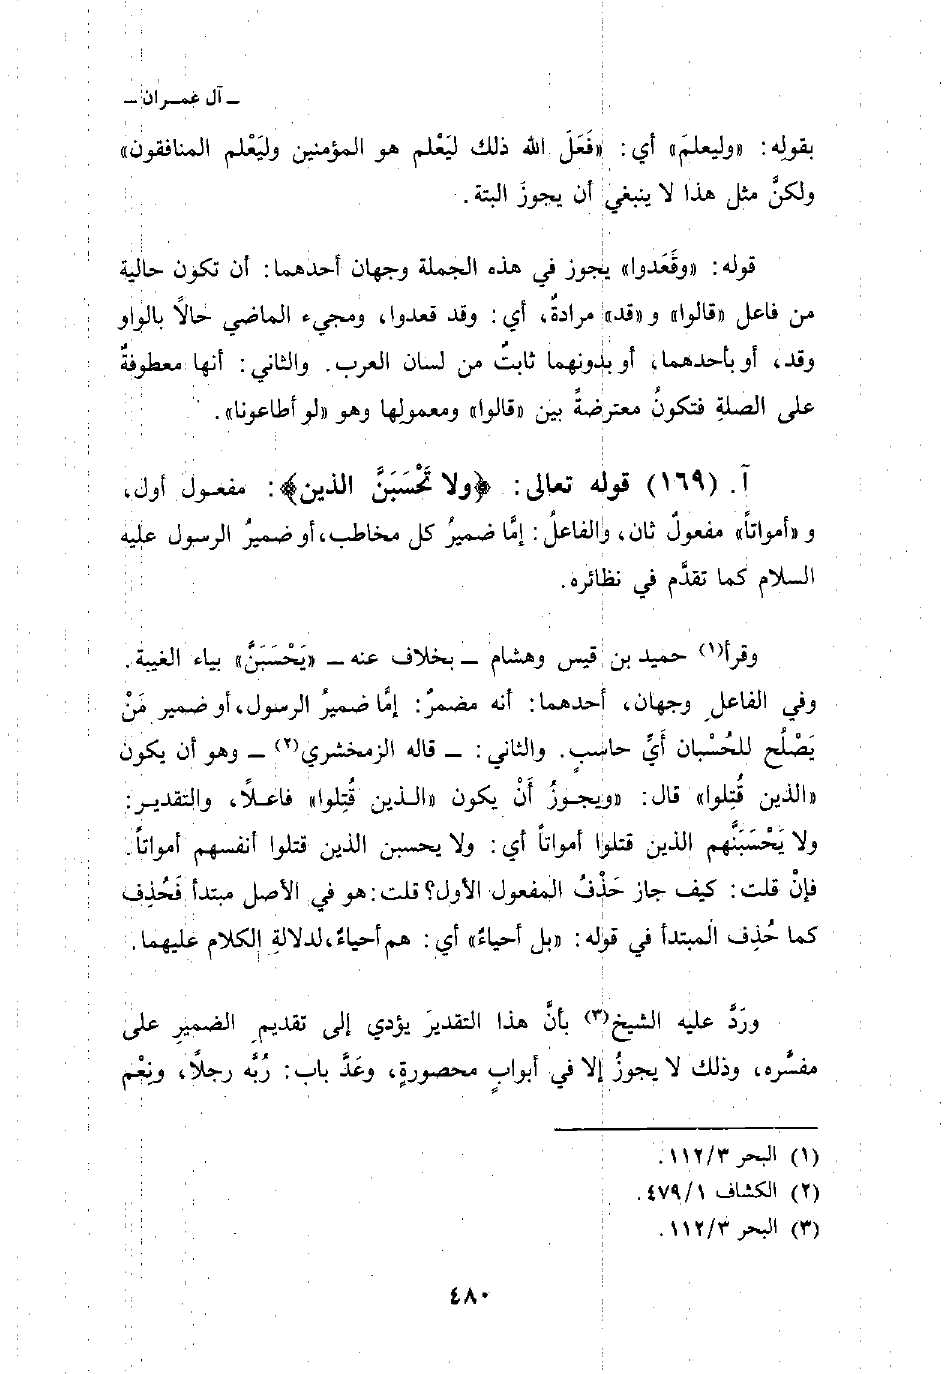 ـ آل عمـران ـ
بقولِه: «وليعلمَ» أي: «فَعَلَ الله ذلك ليَعْلم هو المؤمنين وليَعْلم المنافقون»
ولكنَّ مثل هذا لا ينبغي أن يجوزَ البتة.
قوله: «وقَعَدوا» يجوز في هذه الجملة وجهان أحدهما: أن تكون حالية
من فاعل «قالوا» و «قد» مرادةٌ، أي: وقد قعدوا، ومجيء الماضي حالاً بالواو
وقد، أو بأحدهما، أو بدونهما ثابتٌ من لسان العرب. والثاني: أنها معطوفةٌ
على الصلةِ فتكونُ معترضةً بين «قالوا» ومعمولِها وهو «لو أطاعونا».
آ. (١٦٩) قوله تعالى: ﴿ولا تَحْسَبَنَّ الذين﴾: مفعـول أول،
و «أمواتاً» مفعولٌ ثان، والفاعلُ: إمَّا ضميرُ كل مخاطب، أو ضميرُ الرسول عليه
السلام كما تقدَّم في نظائره.
وقرأ(١) حميد بن قيس وهشام ـ بخلاف عنه ـ «يَحْسَبَنَّ» بياء الغيبة.
وفي الفاعلِ وجهان، أحدهما: أنه مضمرٌ: إمَّا ضميرُ الرسول، أو ضمير مَنْ
يَصْلُح للحُسْبان أيِّ حاسبٍ. والثاني: ـ قاله الزمخشري(٢) ـ وهو أن يكون
«الذين قُتِلوا» قال: «ويجـوزُ أَنْ يكون «الـذين قُتِلوا» فاعـلاً، والتقديـر:
ولا يَحْسَبَنَّهم الذين قتلوا أمواتاً أي: ولا يحسبن الذين قتلوا أنفسهم أمواتاً.
فإنْ قلت: كيف جاز حَذْفُ المفعول الأول؟ قلت: هو في الأصل مبتدأ فَحُذِف
كما حُذِف المبتدأ في قوله: «بل أحياءٌ» أي: هم أحياءٌ، لدلالةِ الكلام عليهما.
ورَدَّ عليه الشيخ(٣) بأنَّ هذا التقديرَ يؤدي إلى تقديمِ الضميرِ على
مفسِّره، وذلك لا يجوزُ إلا في أبوابٍ محصورةٍ، وعَدَّ باب: رُبَّه رجلاً، ونِعْم
(١) البحر ١١٢/٣.
(٢) الكشاف ٤٧٩/١.
(٣) البحر ١١٢/٣.
٤٨٠